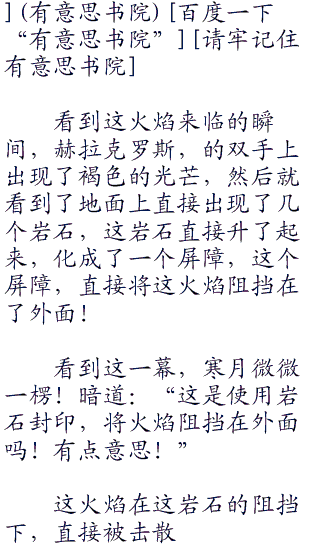 ] (有意思书院) [百度一下
“有意思书院” ] [请牢记住
有意思书院]
看到这火焰来临的瞬
间，赫拉克罗斯，的双手上
出现了褐色的光芒，然后就
看到了地面上直接出现了几
个岩石，这岩石直接升了起
来，化成了一个屏障，这个
屏障，直接将这火焰阻挡在
了外面！
看到这一幕，寒月微微
一楞！暗道：“这是使用岩
石封印，将火焰阻挡在外面
吗！有点意思！”
这火焰在这岩石的阻挡
下，直接被击散